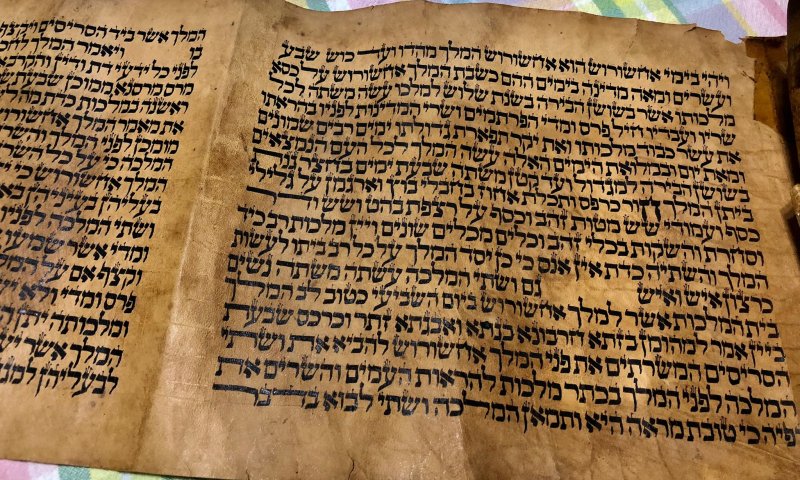 ויהי בימי אחשורוש הוא אחשורוש המלך מהדו ועד כוש שבע
ועשרים ומאה מדינה בימים ההם כשבת המלך אחשורוש על כסא
מלכותו אשר בשושן הבירה בשנת שלוש למלכו עשה משתה לכל
שריו ועבדיו חיל פרס ומדי הפרתמים ושרי המדינות לפניו בהראתו
את עשר כבוד מלכותו ואת יקר תפארת גדולתו ימים רבים שמונים
ומאת יום ובמלואת הימים האלה עשה המלך לכל העם הנמצאים
בשושן הבירה למגדול ועד קטן משתה שבעת ימים בחצר גנת
ביתן המלך חור כרפס ותכלת אחוז בחבלי בוץ וארגמן על גלילי
כסף ועמודי שש מטות זהב וכסף על רצפת בהט ושש ודר
וסחרת והשקות בכלי זהב וכלים מכלים שונים ויין מלכות רב כיד
המלך והשתיה כדת אין אנס כי כן יסד המלך על כל רב ביתו לעשות
כרצון איש ואיש גם ושתי המלכה עשתה משתה נשים
בית המלכות אשר למלך אחשורוש ביום השביעי כטוב לב המלך
ביין אמר למהומן בזתא חרבונא בגתא ואבגתא זתר וכרכס שבעת
הסריסים המשרתים את פני המלך אחשורוש להביא את ושתי
המלכה לפני המלך בכתר מלכות להראות העמים והשרים את
יפיה כי טובת מראה היא ותמאן המלכה ושתי לבוא בדבר
המלך אשר ביד הסריסים ויקצף
בו ויאמר המלך לחכ
לפני כל ידעי דת ודין והקרב
מרס מרסנא ממוכן שבעת
ראשנה במלכות כדת מה
את מאמר המלך
מומכן לפני המלך והשר
המלכה כי על כל השרי
המלך אחשורוש כי
בעליהן בעיניהן
ושתי המלכה לפניו
ומדי אשר שמעו
וקצף אם על המל
פרס ומדי ולא
ומלכותה יתן
המלך אשר
לבעליהן